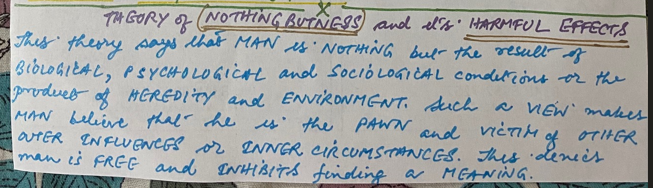 THEORY of NOTHINGBUTNESS and it's HARMFUL EFFECTS
This theory says that MAN is NOTHING but the result of
BIOLOGICAL, PSYCHOLOGICAL and SOCIOLOGICAL conditions or the
product of HEREDITY and ENVIRONMENT. Such a VIEW makes
MAN believe that he is the PAWN and VICTIM of OTHER
OUTER INFLUENCES or INNER CIRCUMSTANCES. This denies
man is FREE and INHIBITS finding a MEANING.